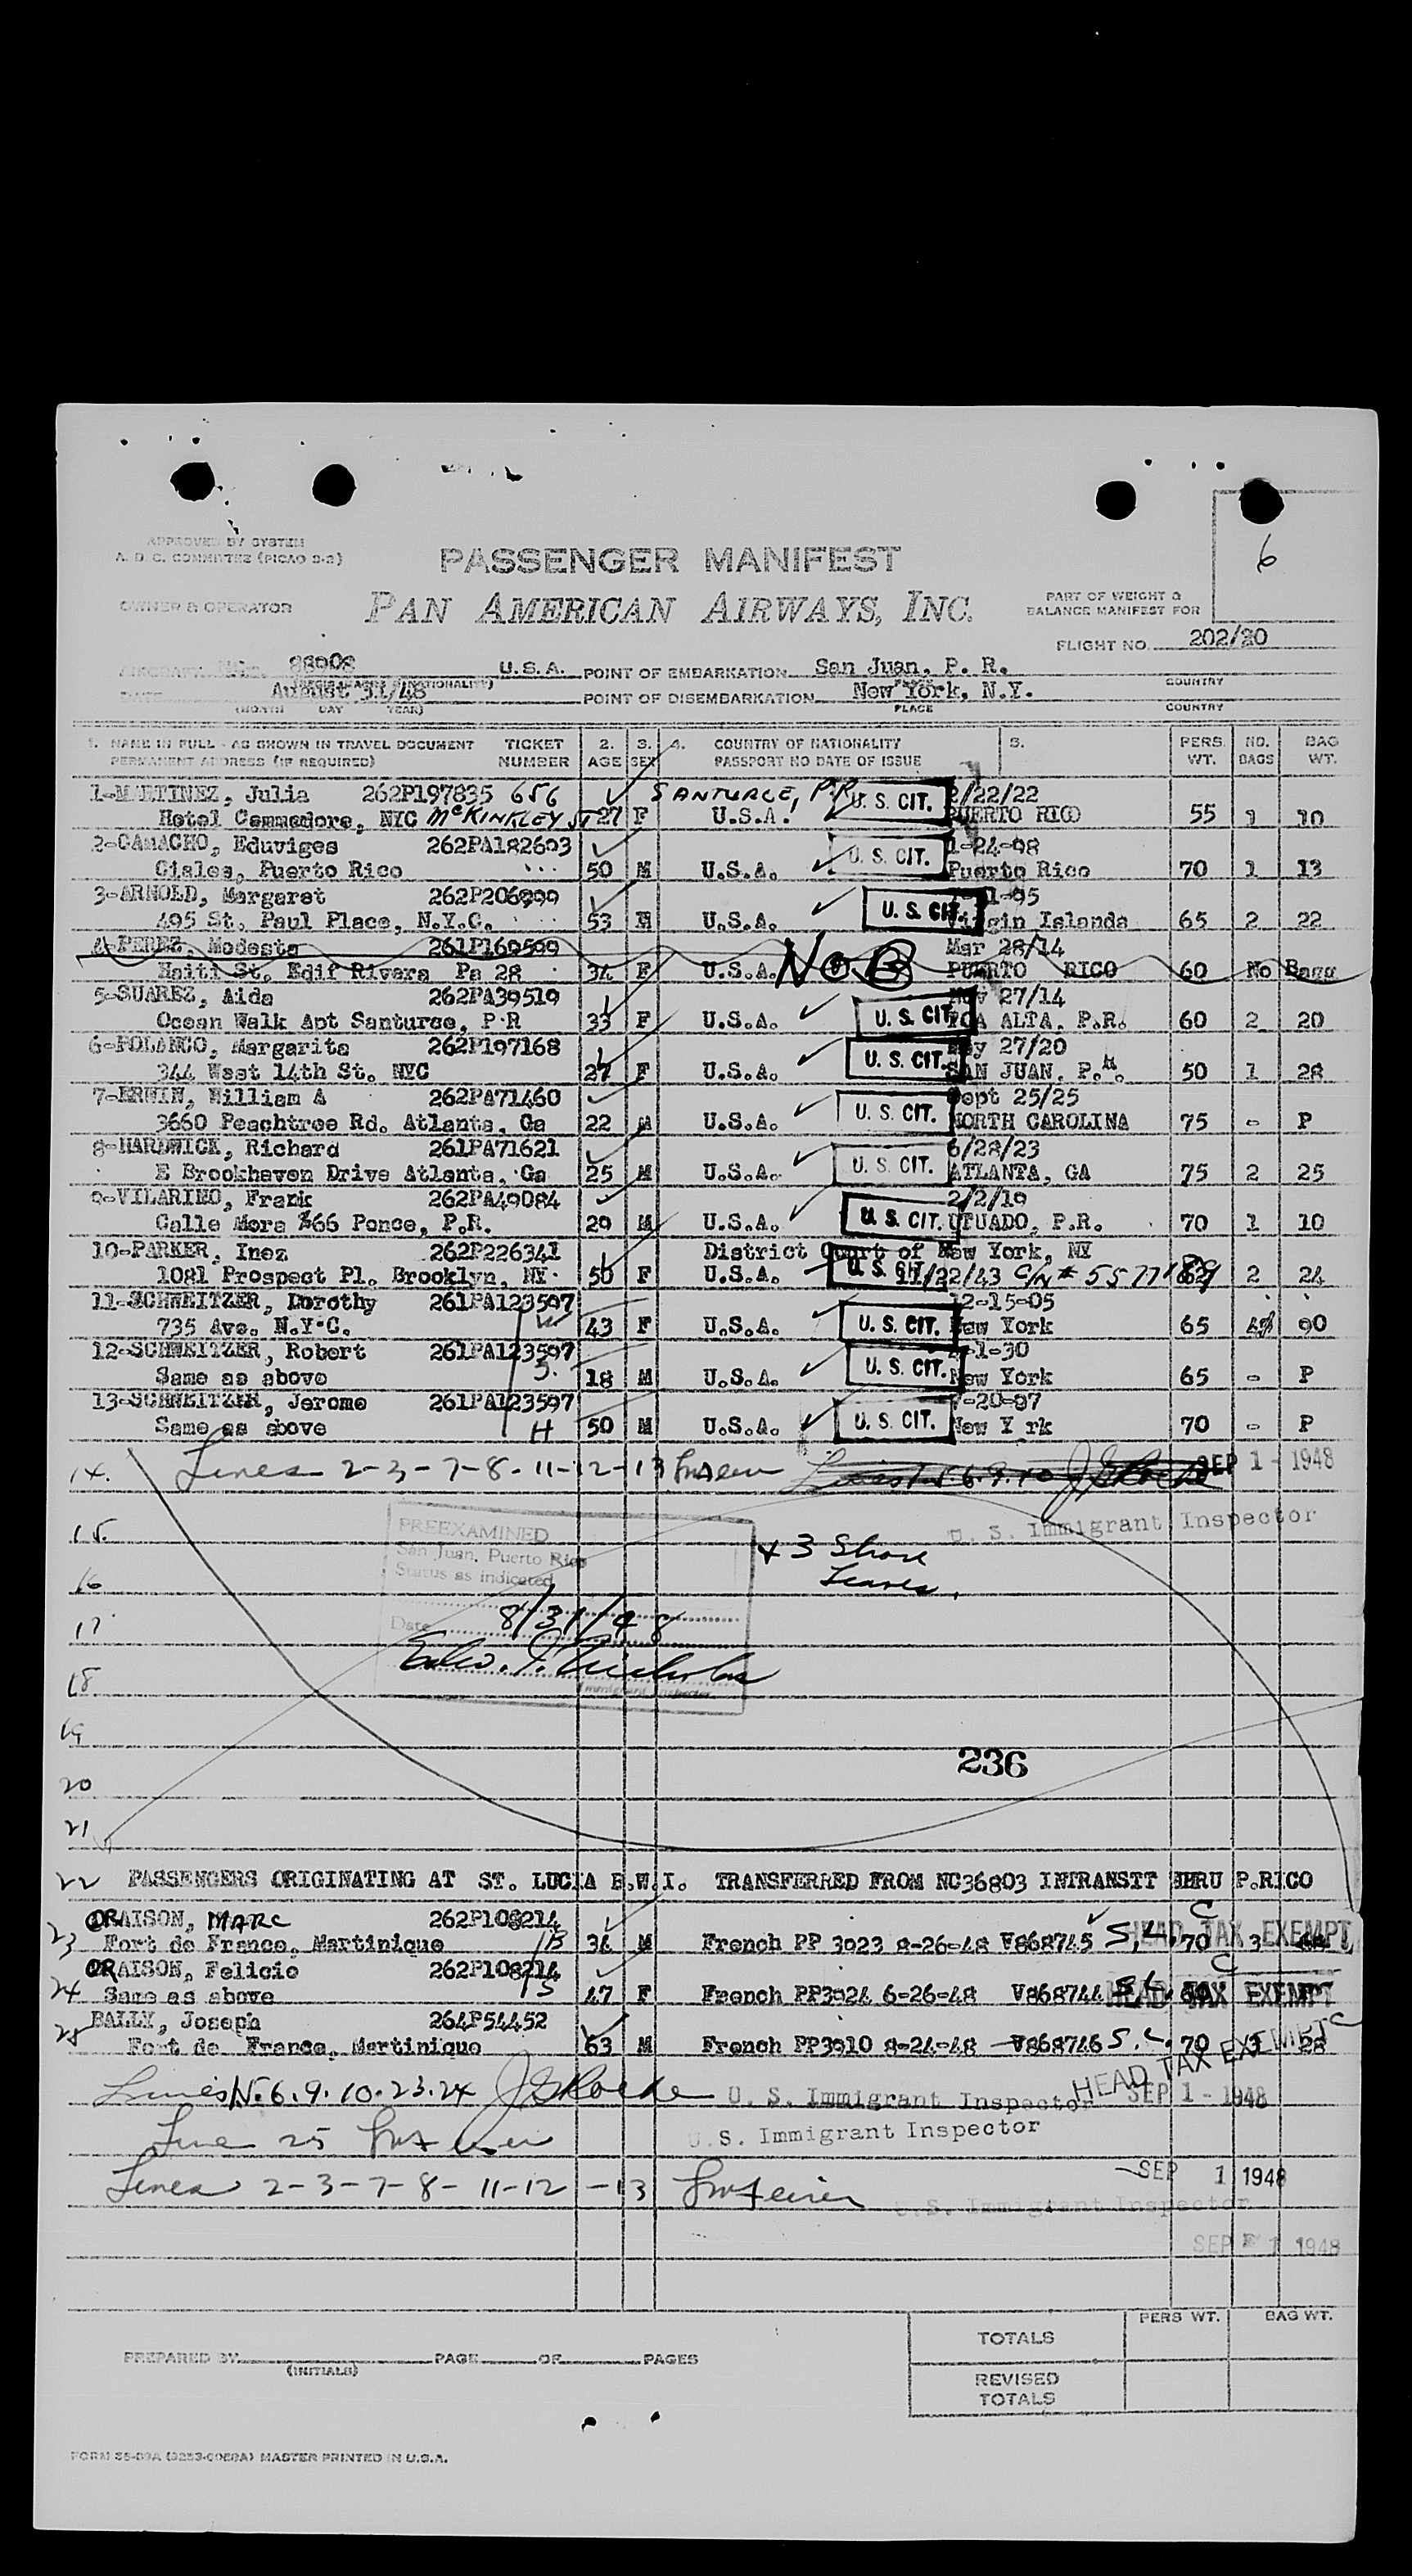 6
APPROVED BY SYSTEM
A. D. C. COMMITTEE (PICAO 2-2)
PASSENGER MANIFEST
OWNER & OPERATOR
PAN AMERICAN AIRWAYS, INC.
PART OF WEIGHT &
BALANCE MANIFEST FOR
FLIGHT NO. 202/30
AIRCRAFT 88908 U.S.A. POINT OF EMBARKATION San Juan, P. R.
(NATIONALITY) COUNTRY
DATE August 31/48 POINT OF DISEMBARKATION New York, N.Y.
(MONTH DAY YEAR) PLACE COUNTRY
1. NAME IN FULL - AS SHOWN IN TRAVEL DOCUMENT TICKET 2. 3. 4. COUNTRY OF NATIONALITY 5. PERS. NO. BAG
PERMANENT ADDRESS (IF REQUIRED) NUMBER AGE SEX PASSPORT NO DATE OF ISSUE WT. BAGS WT.
1-MARTINEZ, Julia 262P197835 656 SANTURCE, P.R. U. S. CIT. 2/22/22
Hotel Commodore, NYC McKINKLEY ST 27 F U.S.A. PUERTO RICO 55 1 10
2-CAMACHO, Eduviges 262PA182603 U. S. CIT. 1-24-98
Ciales, Puerto Rico 50 M U.S.A. Puerto Rico 70 1 13
3-ARNOLD, Margaret 262P206899 U. S. CIT. 1-95
495 St. Paul Place, N.Y.C. 53 U.S.A. Virgin Islands 65 2 22
4-PEREZ, Modesta 261P160599 No B Mar 28/14
Haiti St. Edif Rivera Pa 28 34 F U.S.A. PUERTO RICO 60 No Bagg
5-SUAREZ, Aida 262PA39519 U. S. CIT. Nov 27/14
Ocean Walk Apt Santurce, P.R 33 F U.S.A. TOA ALTA, P.R. 60 2 20
6-POLANCO, Margarita 262P197168 U. S. CIT. May 27/20
344 West 14th St. NYC 27 F U.S.A. SAN JUAN, P.R. 50 1 28
7-ERWIN, William A 262PA71460 U. S. CIT. Sept 25/25
3660 Peachtree Rd. Atlanta, Ga 22 M U.S.A. NORTH CAROLINA 75 - P
8-HARDWICK, Richard 261PA71621 U. S. CIT. 6/28/23
E Brookhaven Drive Atlanta, Ga 25 M U.S.A. ATLANTA, GA 75 2 25
9-VILARINO, Frank 262PA49084 U. S. CIT. 2/2/19
Calle Mora #66 Ponce, P.R. 29 M U.S.A. UTUADO, P.R. 70 1 10
10-PARKER, Inez 262P226341 District Court of New York, NY
1081 Prospect Pl. Brooklyn, NY. 50 F U.S.A. U. S. CIT. 11/22/43 C/N # 2 24
11-SCHWEITZER, Dorothy 261PA123597 U. S. CIT. 12-15-05
735 Ave. N.Y.C. W 43 F U.S.A. New York 65 90
12-SCHWEITZER, Robert 261PA123597 U. S. CIT. -1-30
Same as above S. 18 M U.S.A. New York 65 - P
13-SCHWEITZER, Jerome 261PA123597 U. S. CIT. -20-97
Same as above H 50 M U.S.A. New Y rk 70 - P
14. Lines 2-3-7-8-11-12-13 SEP 1 - 1948
15. U. S. Immigrant Inspector
PREEXAMINED
San Juan, Puerto Rico
Status as indicated
+ 3 Shore
Leaves.
16
17 Date 8/31/48
18 Immigrant Inspector
19
236
20
21
22 PASSENGERS ORIGINATING AT ST. LUCIA B.W.I. TRANSFERRED FROM NC36803 INTRANSIT THRU P.RICO
ORAISON, MARC 262P108214 C
23 Fort de France, Martinique 34 M French PP 3923 8-26-48 V868745 S.L. 70 3 HEAD TAX EXEMPT
ORAISON, Felicie 262P108214 C
24 Same as above 47 F French PP3924 6-26-48 V868744 HEAD TAX EXEMPT
BALLY, Joseph 264P54452
25 Fort de France, Martinique 63 M French PP3910 8-24-48 V868746 S.L. 70 28
HEAD TAX EXEMPT C
Lines 5.6.9.10.23.24 U. S. Immigrant Inspector SEP 1 - 1948
Line 25 U.S. Immigrant Inspector
Lines 2-3-7-8-11-12-13 SEP 1 1948
U.S. Immigrant Inspector
SEP 1 1948
PERS WT. BAG WT.
TOTALS
PREPARED BY PAGE OF PAGES
(INITIALS)
REVISED
TOTALS
MASTER PRINTED IN U.S.A.